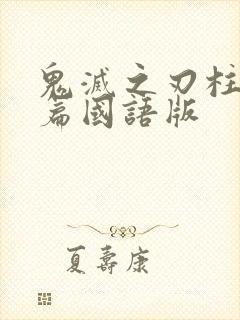 鬼滅之刃柱
篇國語版
夏壽康